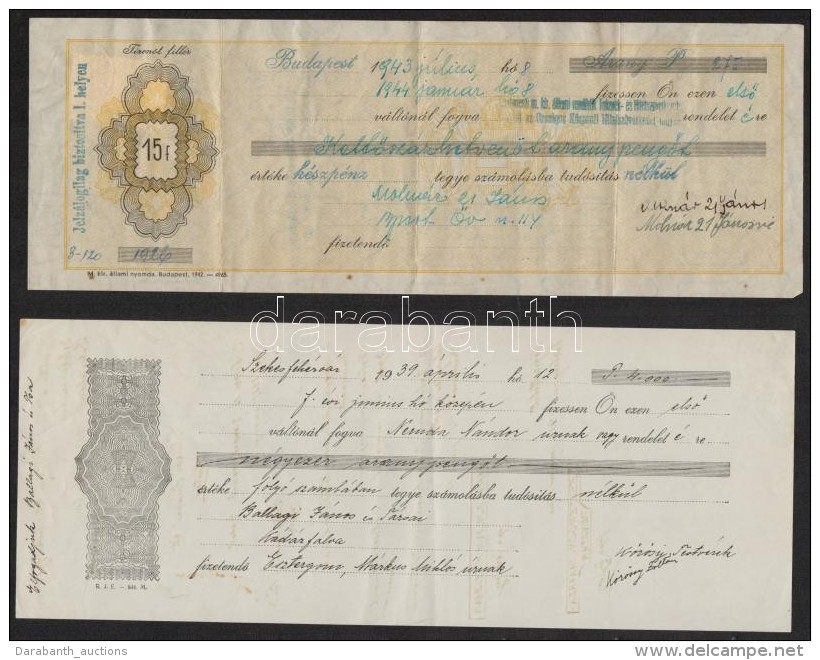 Tizenöt fillér
Budapest 1943 július hó 8 Arany P 275
1944 január hó 8 fizessen Ön ezen első
váltónál fogva rendelet é re
Kettőszázhetvenöt aranypengőt
értéke készpénz tegye számolásba tudósítás nélkül
Molnár 21 János
Molnár 21 Jánosné
fizetendő
Jelzálogilag biztosítva I. helyen
15 f
8-120 1926
M. kir. állami nyomda. Budapest, 1942. —
darabanth
Székesfehérvár 1939 április hó 12. P. 4.000.
f. évi junius hó közepén fizessen Ön ezen első
váltónál fogva Neruda Nándor úrnak vagy rendelet é re
négyezer aranypengőt
értéke folyó számlában tegye számolásba tudósítás nélkül
Ballagi János és Társai
Kádárfalva
fizetendő Esztergom, Márkus Miklós úrnak
Kőrösy Testvérek
Kőrösy Zoltán
Elfogadjuk Ballagi János és Tsa
Darabanth_auctions
delcampe.net